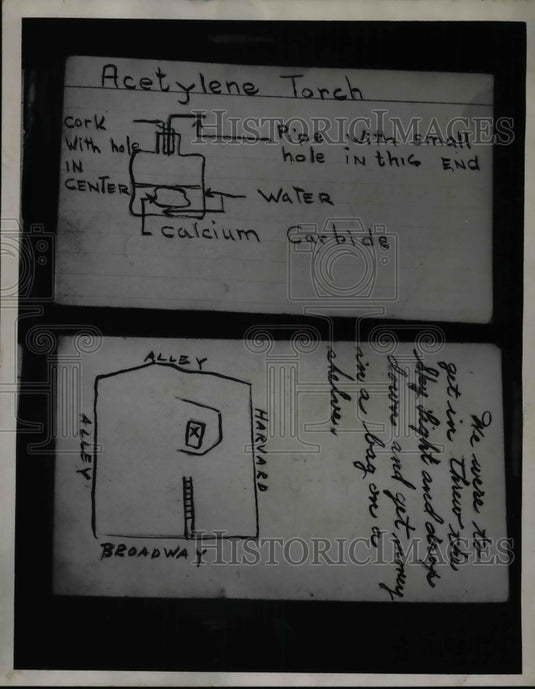 Acetylene Torch
cork
With hole
IN
CENTER
Pipe with small
hole in this END
WATER
calcium Carbide
HISTORICIMAGES
ALLEY
ALLEY
HARVARD
X
BROADWAY
We were to
get in threw the
sky light and drop
down and get money
in a bag on a
shelve.
HISTORICIMAGES